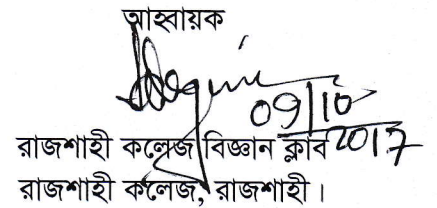 আহ্বায়ক
09/10
2017
রাজশাহী কলেজ বিজ্ঞান ক্লাব
রাজশাহী কলেজ, রাজশাহী।